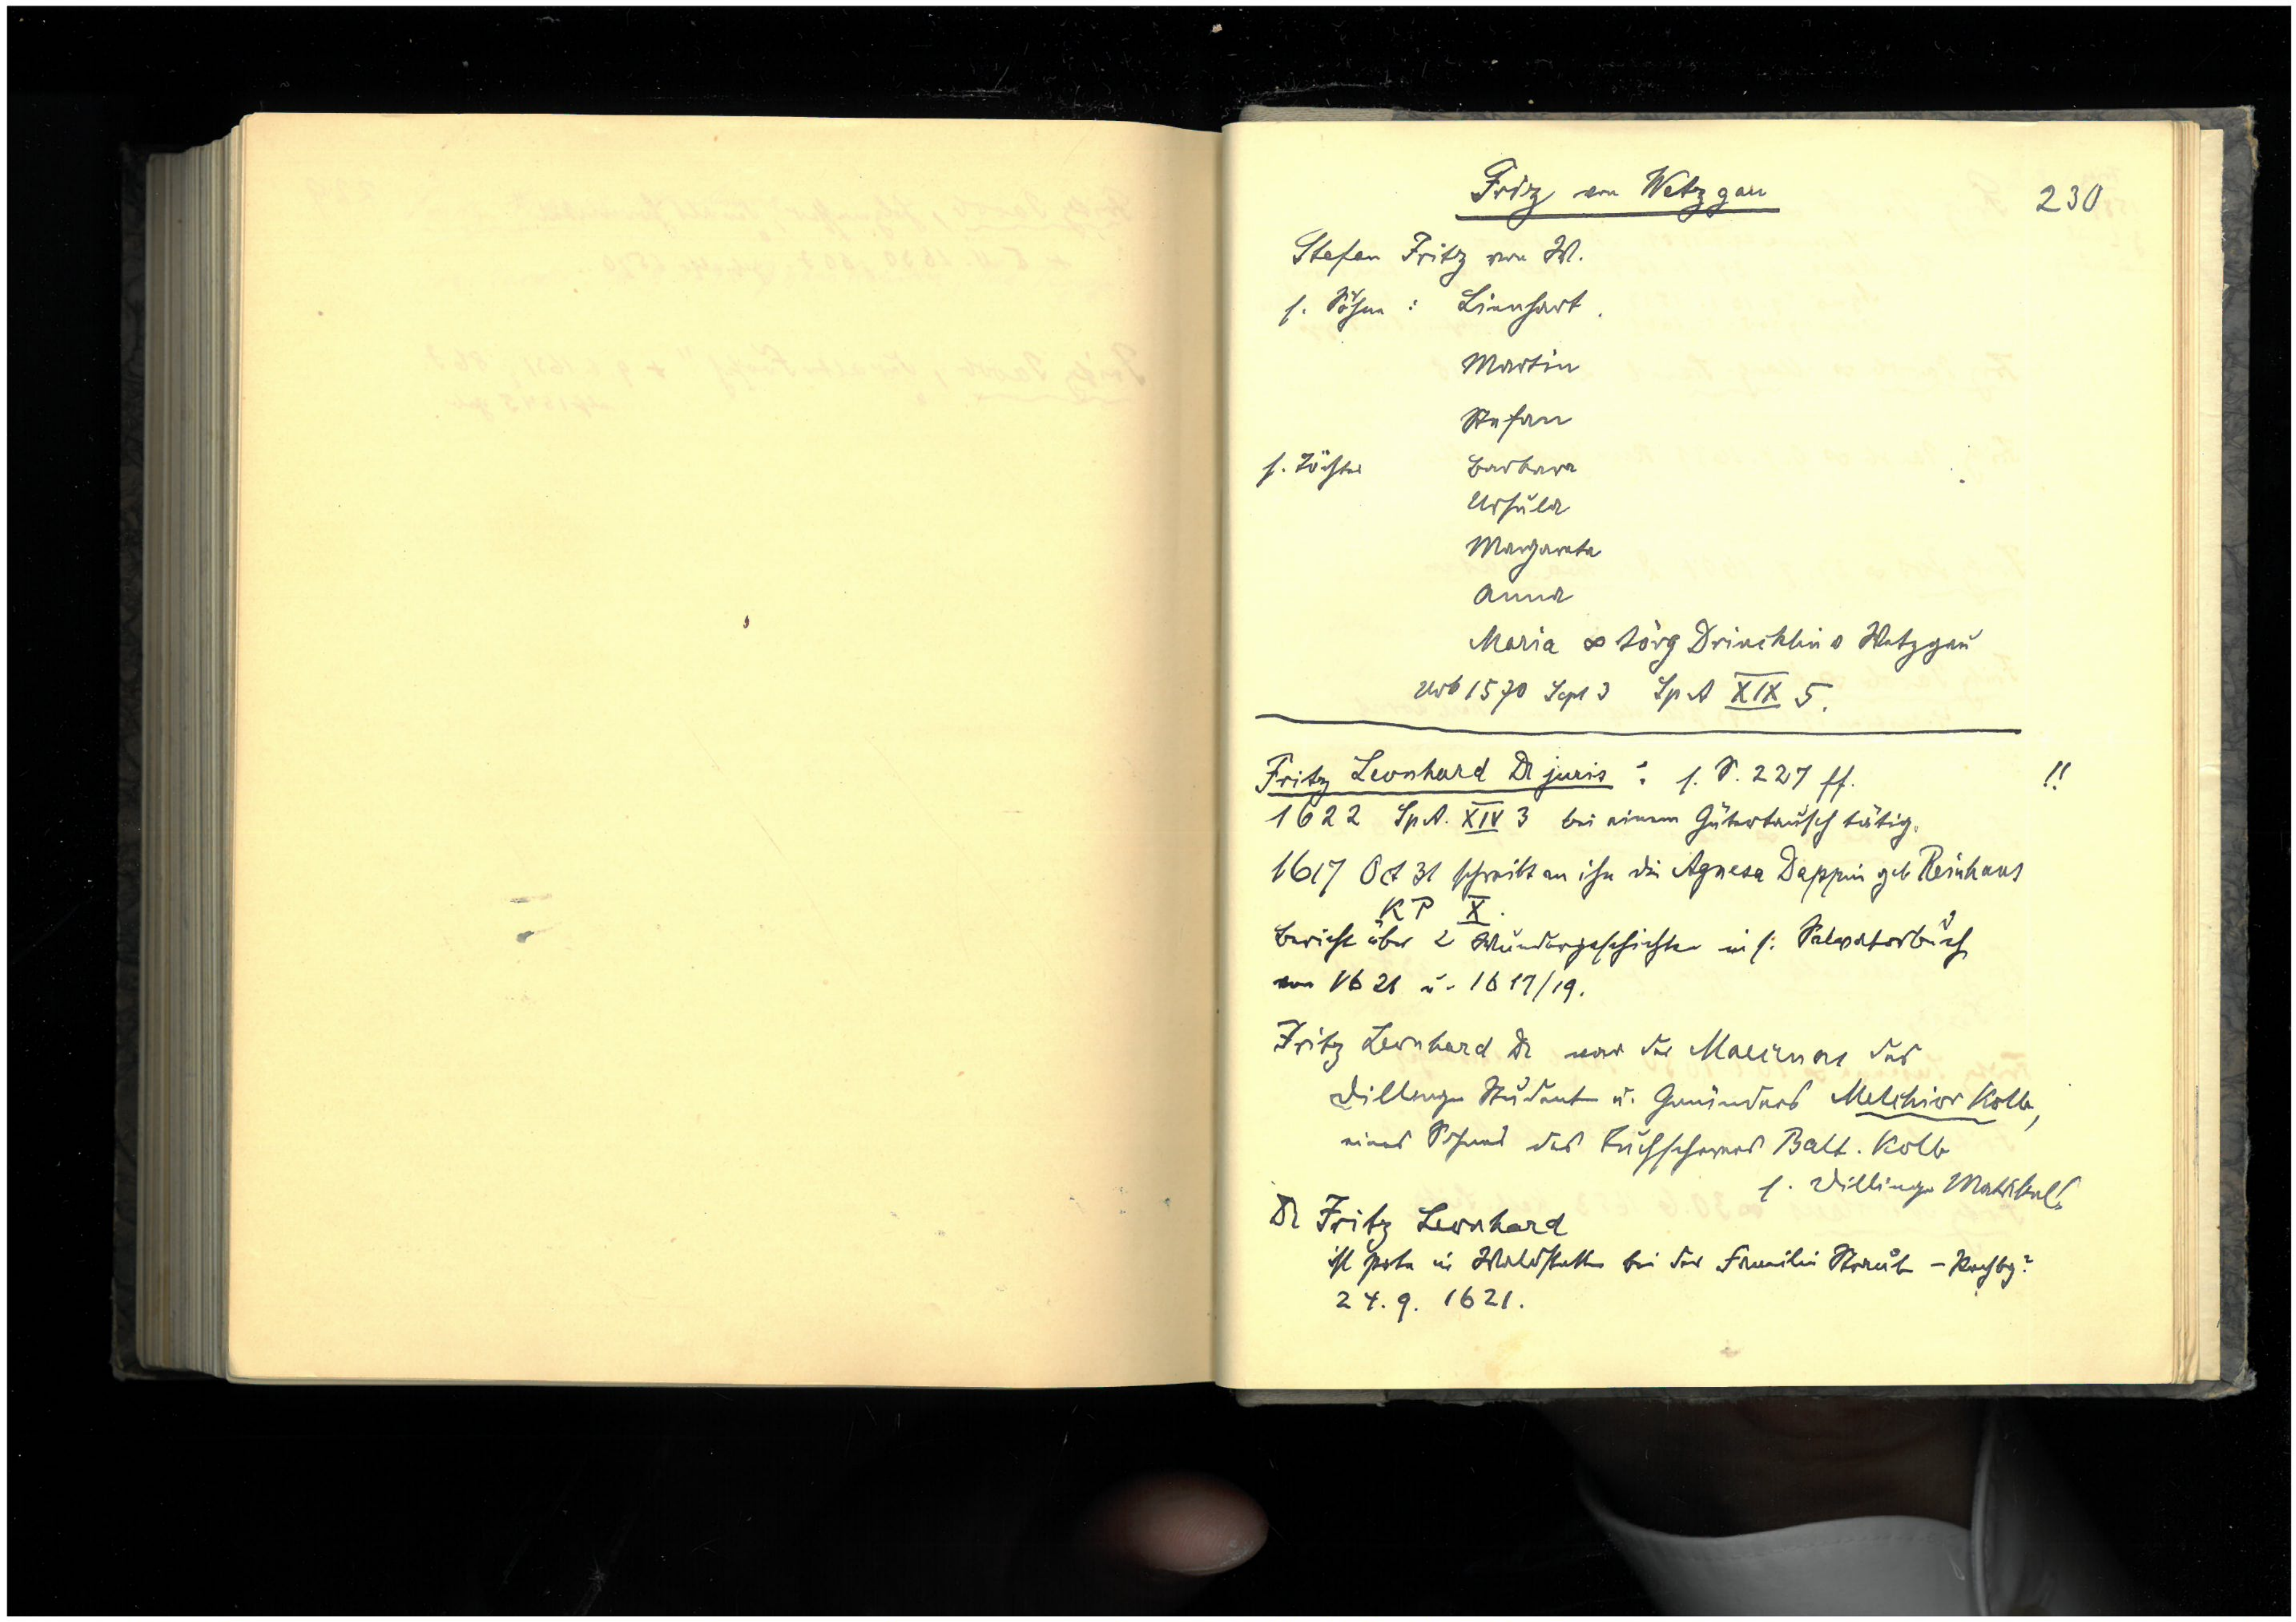 Fritz von Wetzgau
230
Stefan Fritz von W.
s. Söhne : Lienhart.
Martin
Stefan
s. Töchter Barbara
Ursula
Margareta
Anna
Maria ∞ Jörg Drincklin v Wetzgau
Urk 1570 Sept 3 Sp A XIX 5.
Fritz Leonhard Dr juris : s. S. 227 ff. !!
1622 Sp A. XIV 3 bei einem Gütertausch tätig.
1617 Oct 31 schreibt an ihn die Agnesa Dappin geb Reinhaus
KP X.
Bericht über 2 Wundergeschichten in s: Salvatorbuch
von 1621 u. 1617/19.
Fritz Leonhard Dr war der Maecenas des
Dillinger Studenten u. Gmünders Melchior Kolb,
eines Sohnes des Tuchscherers Balt. Kolb
s. Dillinger Matrikel!
Dr Fritz Leonhard
ist Pate in Waldstetten bei der Familie Straub -
24. 9. 1621.